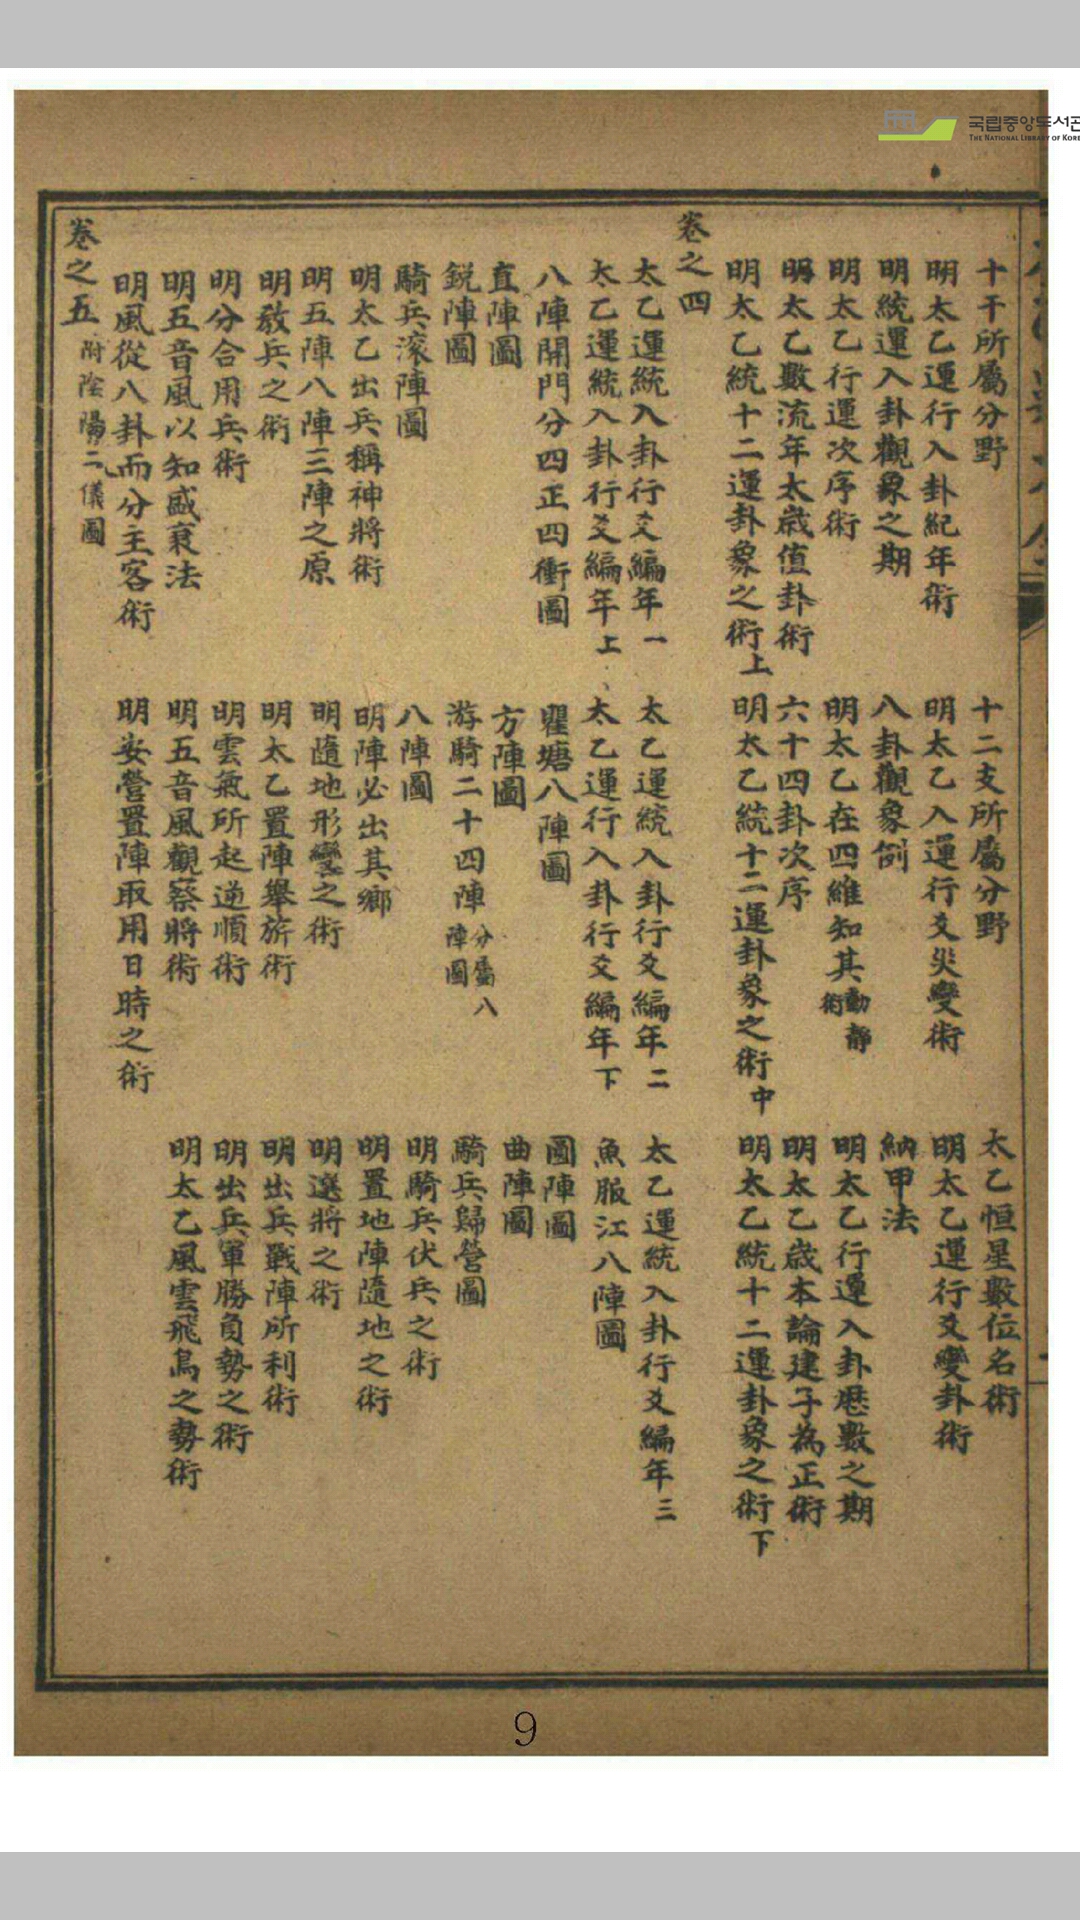 국립중앙도서관
THE NATIONAL LIBRARY OF KORE
十干所屬分野 十二支所屬分野 太乙恒星數位名術
明太乙運行入卦紀年術 明太乙入運行爻災變術 明太乙運行爻變卦術
明統運入卦觀象之期 八卦觀象例 納甲法
明太乙行運次序術 明太乙在四維知其動靜術 明太乙行運入卦歷數之期
明太乙數流年太歲值卦術 六十四卦次序 明太乙歲本論建子為正術
明太乙統十二運卦象之術上 明太乙統十二運卦象之術中 明太乙統十二運卦象之術下
卷之四
太乙運統入卦行爻編年一 太乙運統入卦行爻編年二 太乙運統入卦行爻編年三
太乙運統入卦行爻編年上 太乙運行入卦行爻編年下 魚服江八陣圖
八陣開門分四正四衝圖 瞿塘八陣圖 圓陣圖
直陣圖 方陣圖 曲陣圖
銳陣圖 游騎二十四陣分屬八陣圖 騎兵歸營圖
騎兵滾陣圖 八陣圖 明騎兵伏兵之術
明太乙出兵稱神將術 明陣必出其鄉 明置地陣隨地之術
明五陣八陣三陣之原 明隨地形變之術 明選將之術
明教兵之術 明太乙置陣舉旂術 明出兵戰陣所利術
明分合用兵術 明雲氣所起逆順術 明出兵軍勝負勢之術
明五音風以知盛衰法 明五音風觀察將術 明太乙風雲飛鳥之勢術
明風從八卦而分主客術 明安營置陣取用日時之術
卷之五 附陰陽二儀圖
9